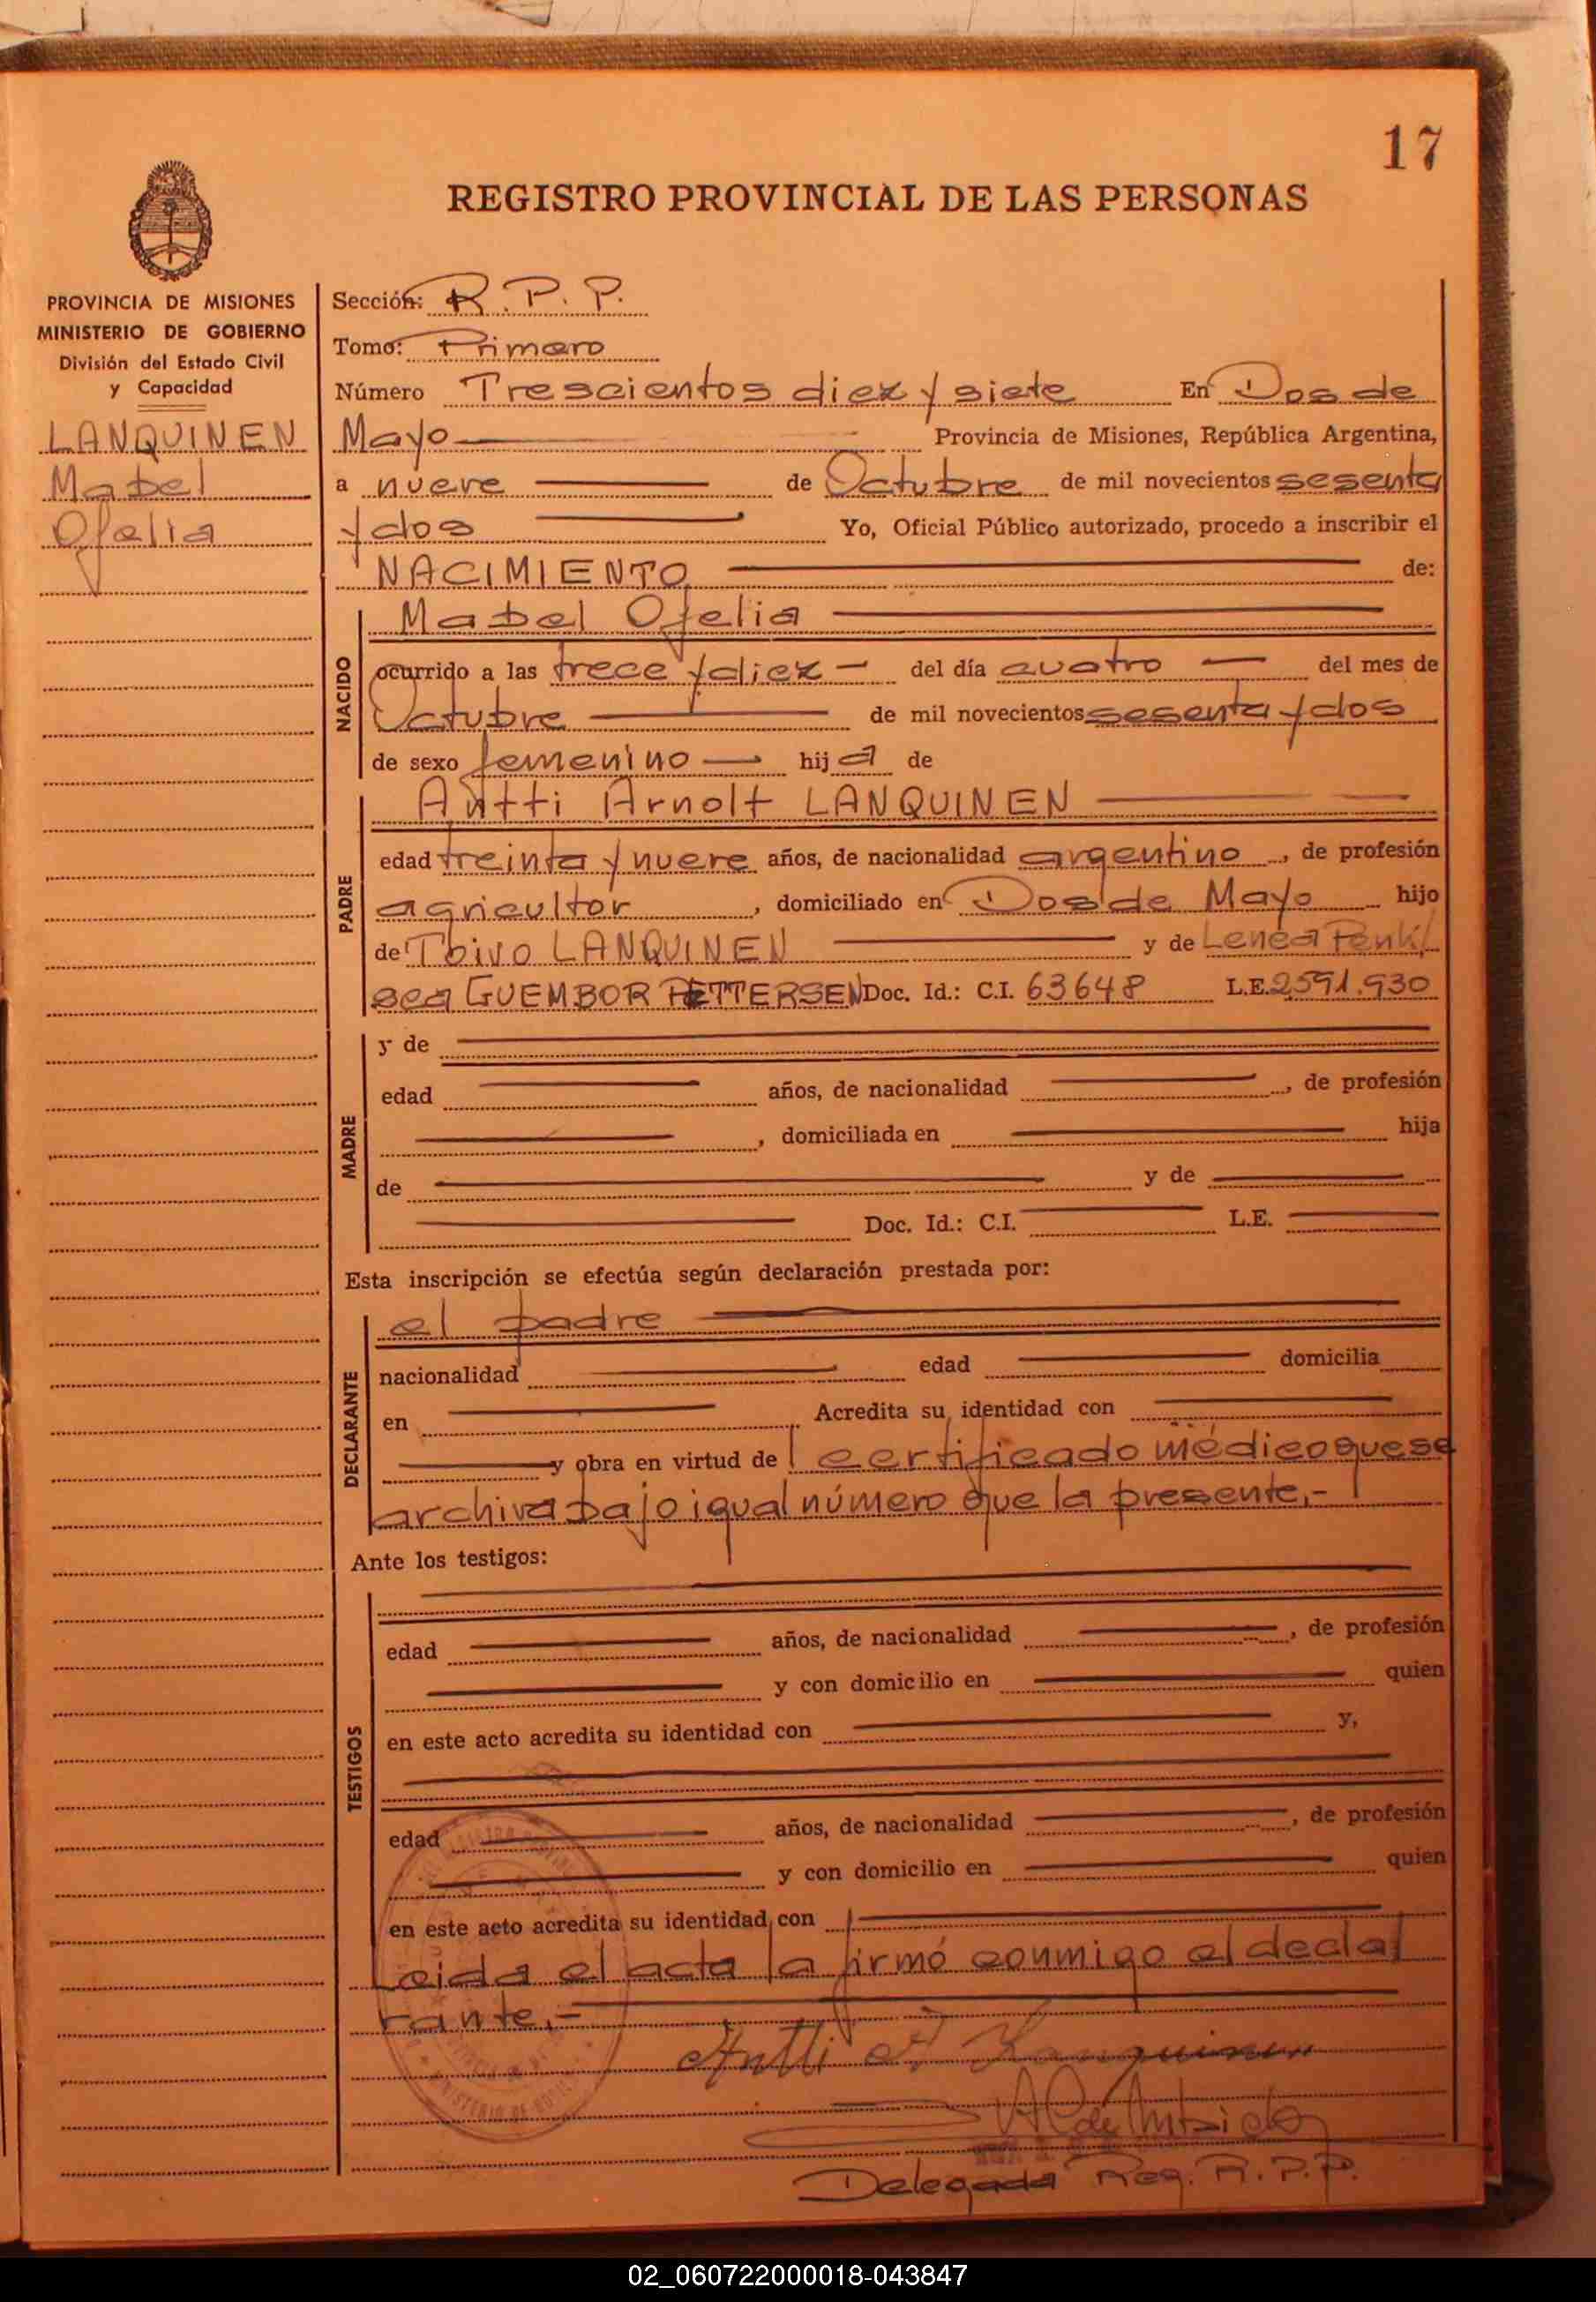 17
REGISTRO PROVINCIAL DE LAS PERSONAS
PROVINCIA DE MISIONES
MINISTERIO DE GOBIERNO
División del Estado Civil
y Capacidad
LANQUINEN
Mabel
Ofelia
Sección: R. P. P.
Tomo: Primero
Número Trescientos diez y siete En Dos de
Mayo Provincia de Misiones, República Argentina,
a nueve de Octubre de mil novecientos sesenta
y dos Yo, Oficial Público autorizado, procedo a inscribir el
NACIMIENTO de:
NACIDO
Mabel Ofelia
ocurrido a las trece y diez del día cuatro del mes de
Octubre de mil novecientos sesenta y dos
de sexo femenino hija de
PADRE
Antti Arnolt LANQUINEN
edad treinta y nueve años, de nacionalidad argentino, de profesión
agricultor, domiciliado en Dos de Mayo hijo
de Toivo LANQUINEN y de Lenea
sea GUEMBOR PETTERSEN Doc. Id.: C.I. 63648 L.E. 2591.930
MADRE
y de
edad años, de nacionalidad , de profesión
, domiciliada en hija
de y de
Doc. Id.: C.I. L.E.
Esta inscripción se efectúa según declaración prestada por:
DECLARANTE
el padre
nacionalidad edad domicilia
en Acredita su identidad con
y obra en virtud del certificado médico que se
archiva bajo igual número que la presente.-
Ante los testigos:
TESTIGOS
edad años, de nacionalidad , de profesión
y con domicilio en quien
en este acto acredita su identidad con y,
edad años, de nacionalidad , de profesión
y con domicilio en quien
en este acto acredita su identidad con
Leida el acta la firmó conmigo el decla
rante.-
Antti A. Lanquinen
Delegada Reg. R. P. P.
02_060722000018-043847